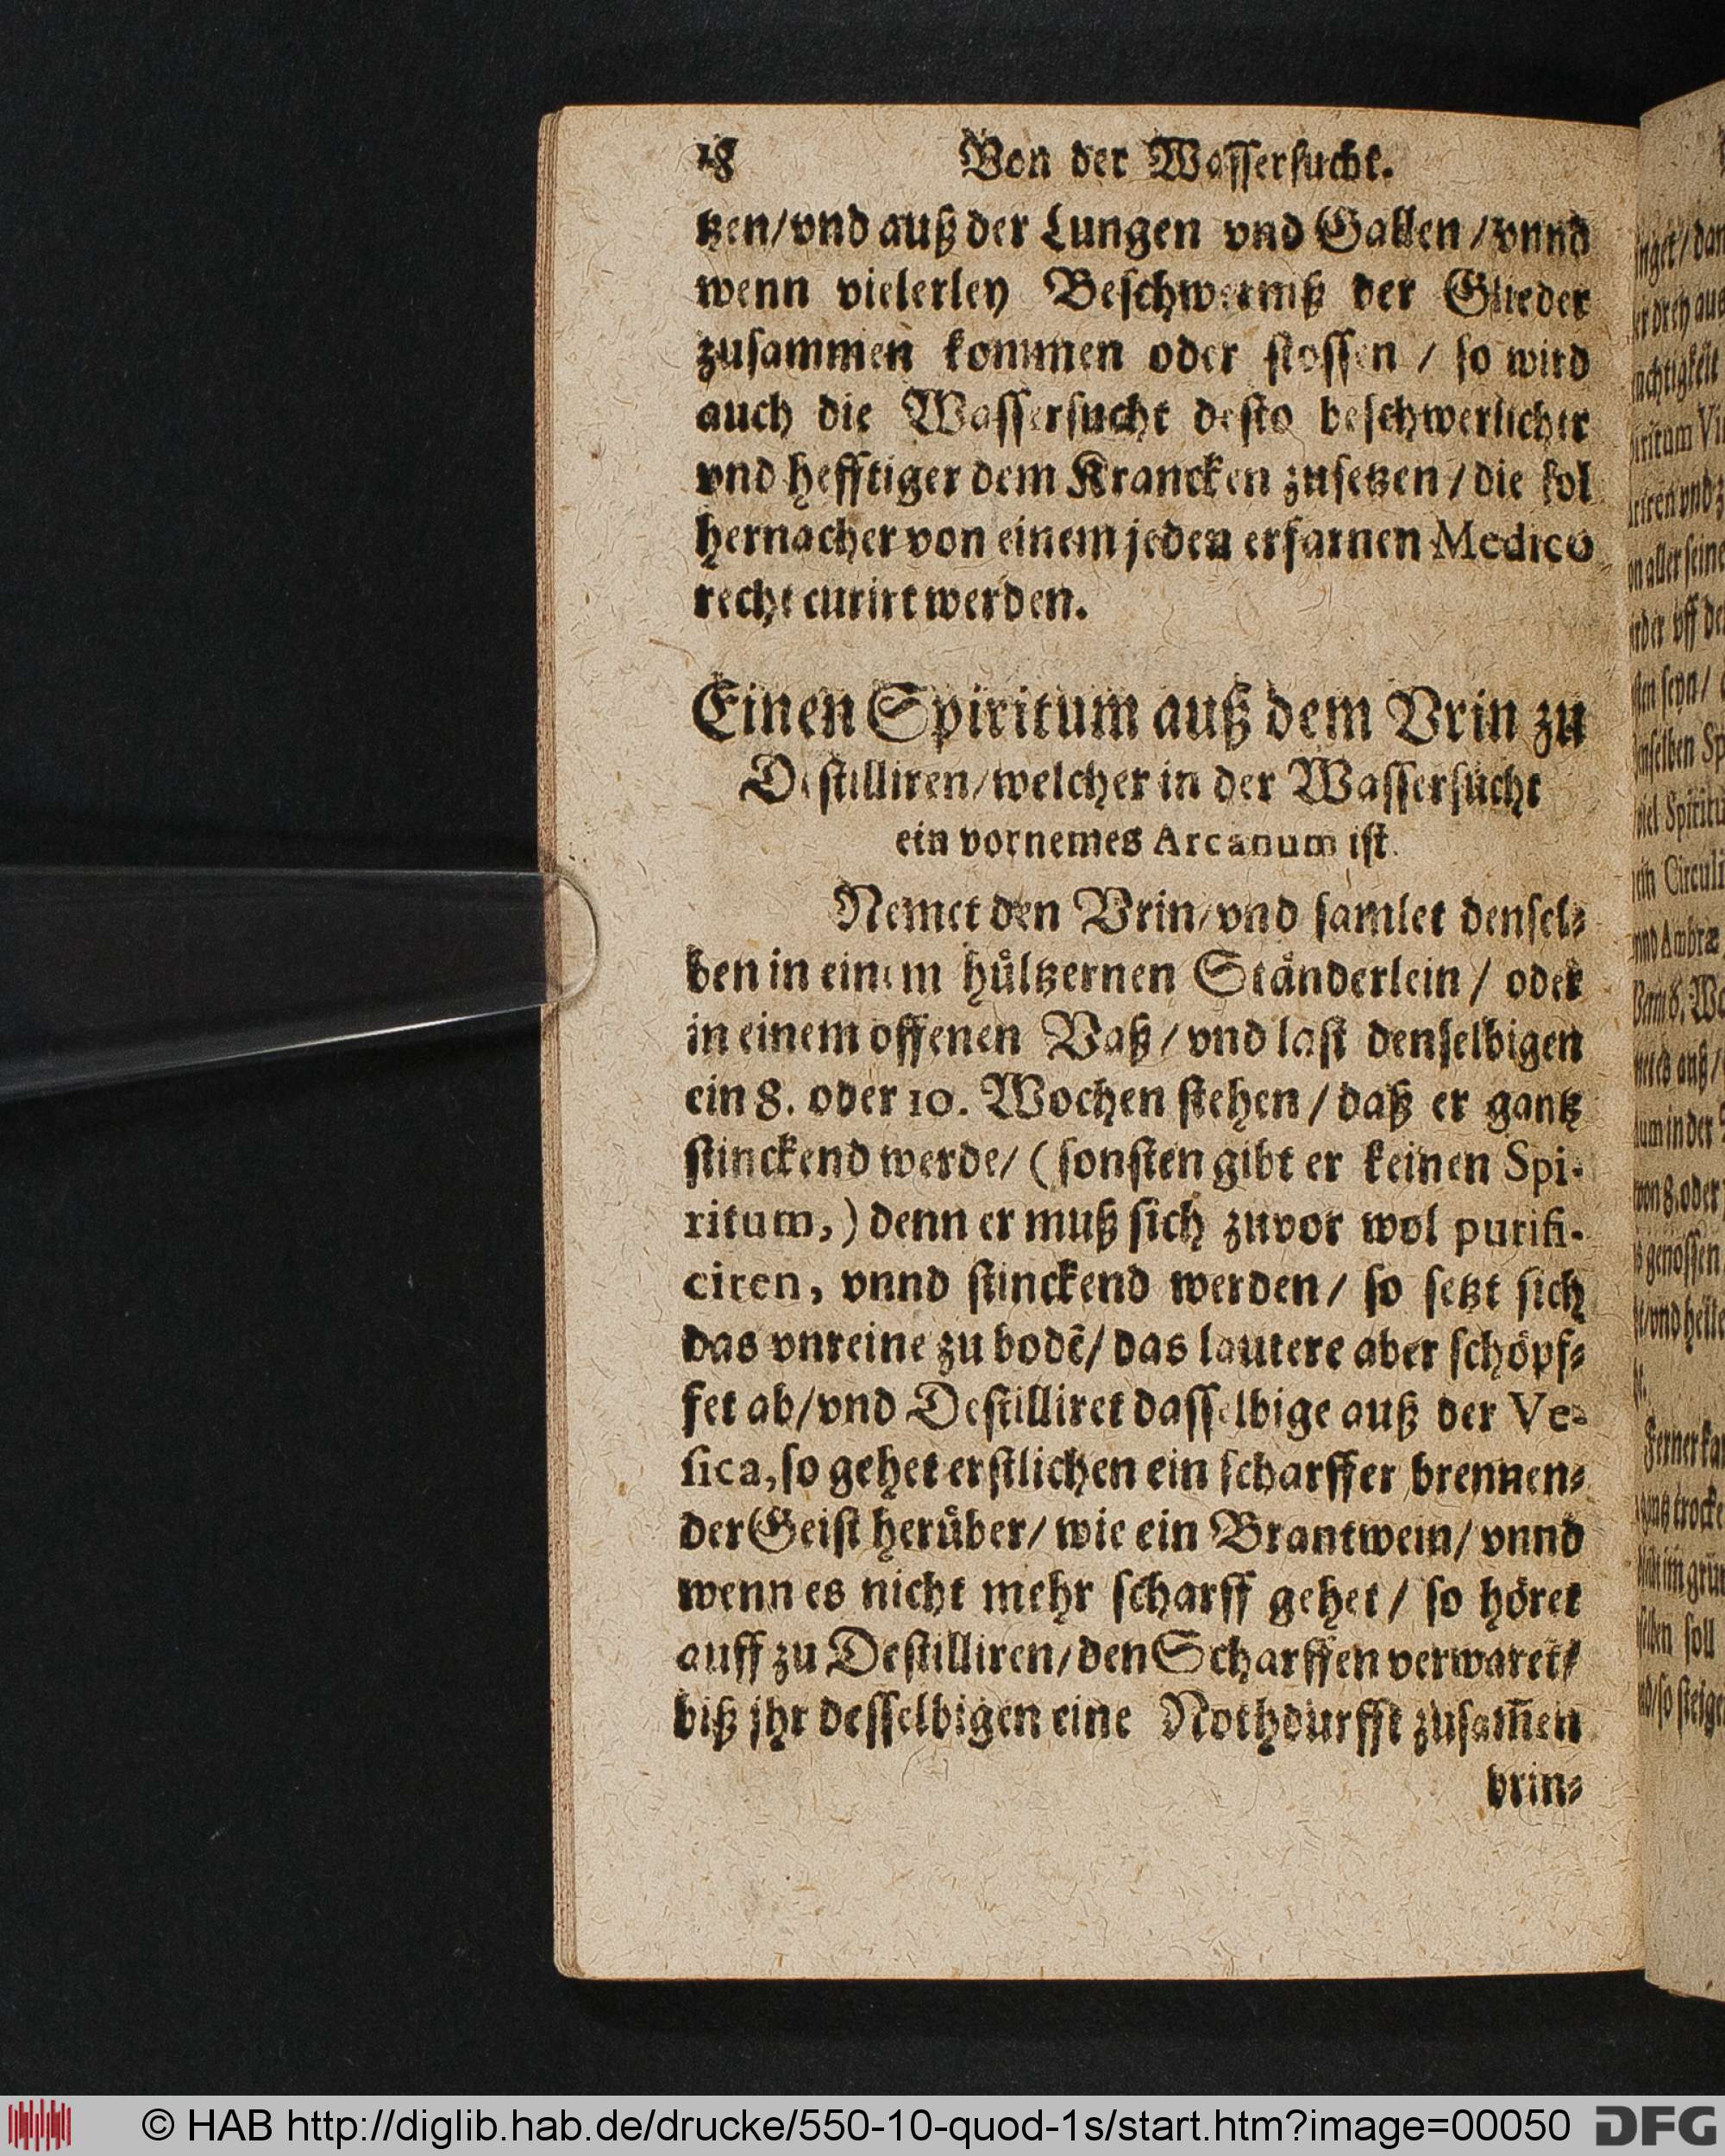 18 Von der Wasserſucht.
tzen/vnd auß der Lungen vnd Gallen/vnnd
wenn vielerley Beſchwerniß der Glieder
zuſammen kommen oder ſtoſſen / ſo wird
auch die Waſſerſucht deſto beſchwerlicher
vnd hefftiger dem Krancken zuſetzen/die ſol
hernacher von einem jeden erfarnen Medico
recht curirt werden.
Einen Spiritum auß dem Vrin zu
Deſtilliren/welcher in der Waſſerſucht
ein vornemes Arcanum iſt.
Nemet den Vrin/vnd ſamlet denſel⸗
ben in einem huͤltzernen Staͤnderlein / oder
in einem offenen Vaß/vnd laſt denſelbigen
ein 8. oder 10. Wochen ſtehen/daß er gantz
ſtinckend werde/(ſonſten gibt er keinen Spi-
ritum,) denn er muß ſich zuvor wol purifi-
ciren, vnnd ſtinckend werden/ ſo ſetzt ſich
das vnreine zu bodē/das lautere aber ſchoͤpf⸗
fet ab/vnd Deſtilliret daſſelbige auß der Ve-
ſica, ſo gehet erſtlichen ein ſcharffer brennen⸗
der Geiſt heruͤber/wie ein Brantwein/vnnd
wenn es nicht mehr ſcharff gehet/ ſo hoͤret
auff zu Deſtilliren/den Scharffen verwaret/
biß jhr deſſelbigen eine Nothdurfft zuſam̃en
brin⸗
© HAB http://diglib.hab.de/drucke/550-10-quod-1s/start.htm?image=00050
DFG